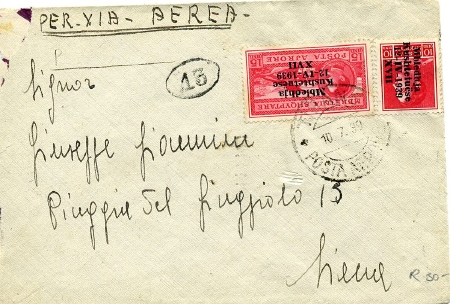 PER·VIA - AEREA -
Signor
13
15 15
POSTA AJRORE
MBRETNIA SHQIPTARE
Mbledhja
Kushtetuese
12-IV-1939
XVII
10 10
Mbledhja
Kushtetuese
12-IV-1939
XVII
10.7.39
POSTA AEREA
Giuseppe
Piaggia del Giuggiolo 15
Siena
R 30-